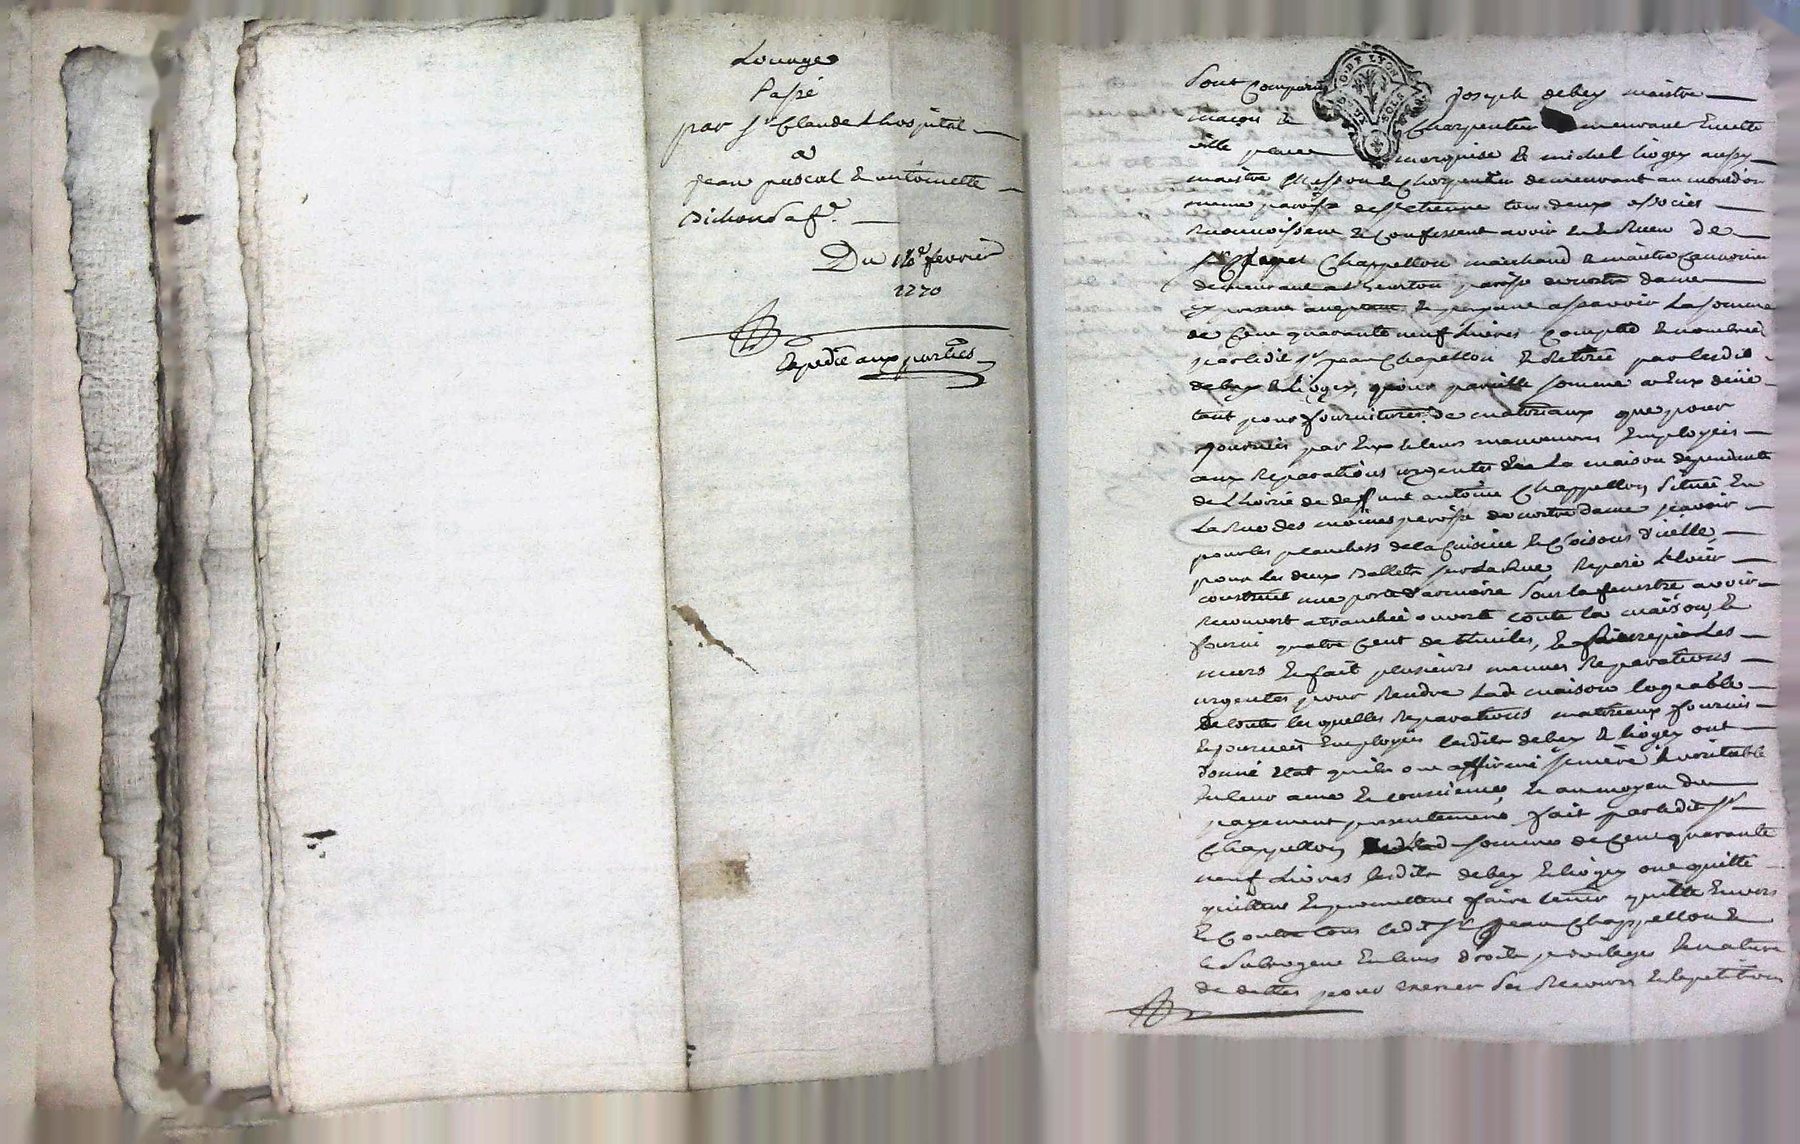 Louage
Passé
par Sr Claude Lhospital
a
jean pascal & antoinette
Dichond sa fe.
Du 18e fevrier
1770
Expedié aux parties
G. DE LYON
Sont comparus joseph debey maistre
maçon & charpentier demeurant En cette
ville place marquise & michel liogey aussy
maistre Masson & Charpentier demeurant au mond'or
meme paroisse de St etienne tous deux associés
Reconnoissent & confessent avoir Eu & Receu de
Sr Chappellon marchand & maistre canonier
demeurant a paroisse de nostre dame
cy present & aspavoir La somme
de Cent quarante neuf Livres Compté & nombrée
par ledit Sr jean Chapellon & Retirée par lesdits
debey & liogey, pour pareille somme a Eux deüe
tant pour fournitures de materiaux que pour
journées par Eux & leurs manoeuvres Employées
aux Reparations urgentes de La maison dependante
de L'hoirie de deffunt antoine Chappellon Située En
La Rue des moines paroisse de nostre dame scavoir
pour les planchers de la Cuisine & d'icelle,
pour les deux sur la Rue Reparé
construit une porte d'armoire Sous la fenestre avoir
Recouvert a tranchée ouverte toute la maison, &
fourni quatre Cent de thuiles, & les
murs & fait plusieurs menues Reparations
urgentes pour Rendre Lad maison logeable
De toutes les quelles Reparations materiaux fournis
& journées Employées lesdits debey & liogey ont
donné Etat qu'ils ont affirmé sincere & veritable
En leur ame & conscience, & au moyen du
payement presentement fait par ledit Sr
Chappellon de lad somme de Cent quarante
neuf Livres lesdits debey & liogey ont quitté
quittent & promettent faire tenir quitte Envers
& Contre tous ledit Sr jean Chappellon &
le Subrogent En leurs droits privileges & nature
de dettes pour Exercer Ses Recours & Repetitions